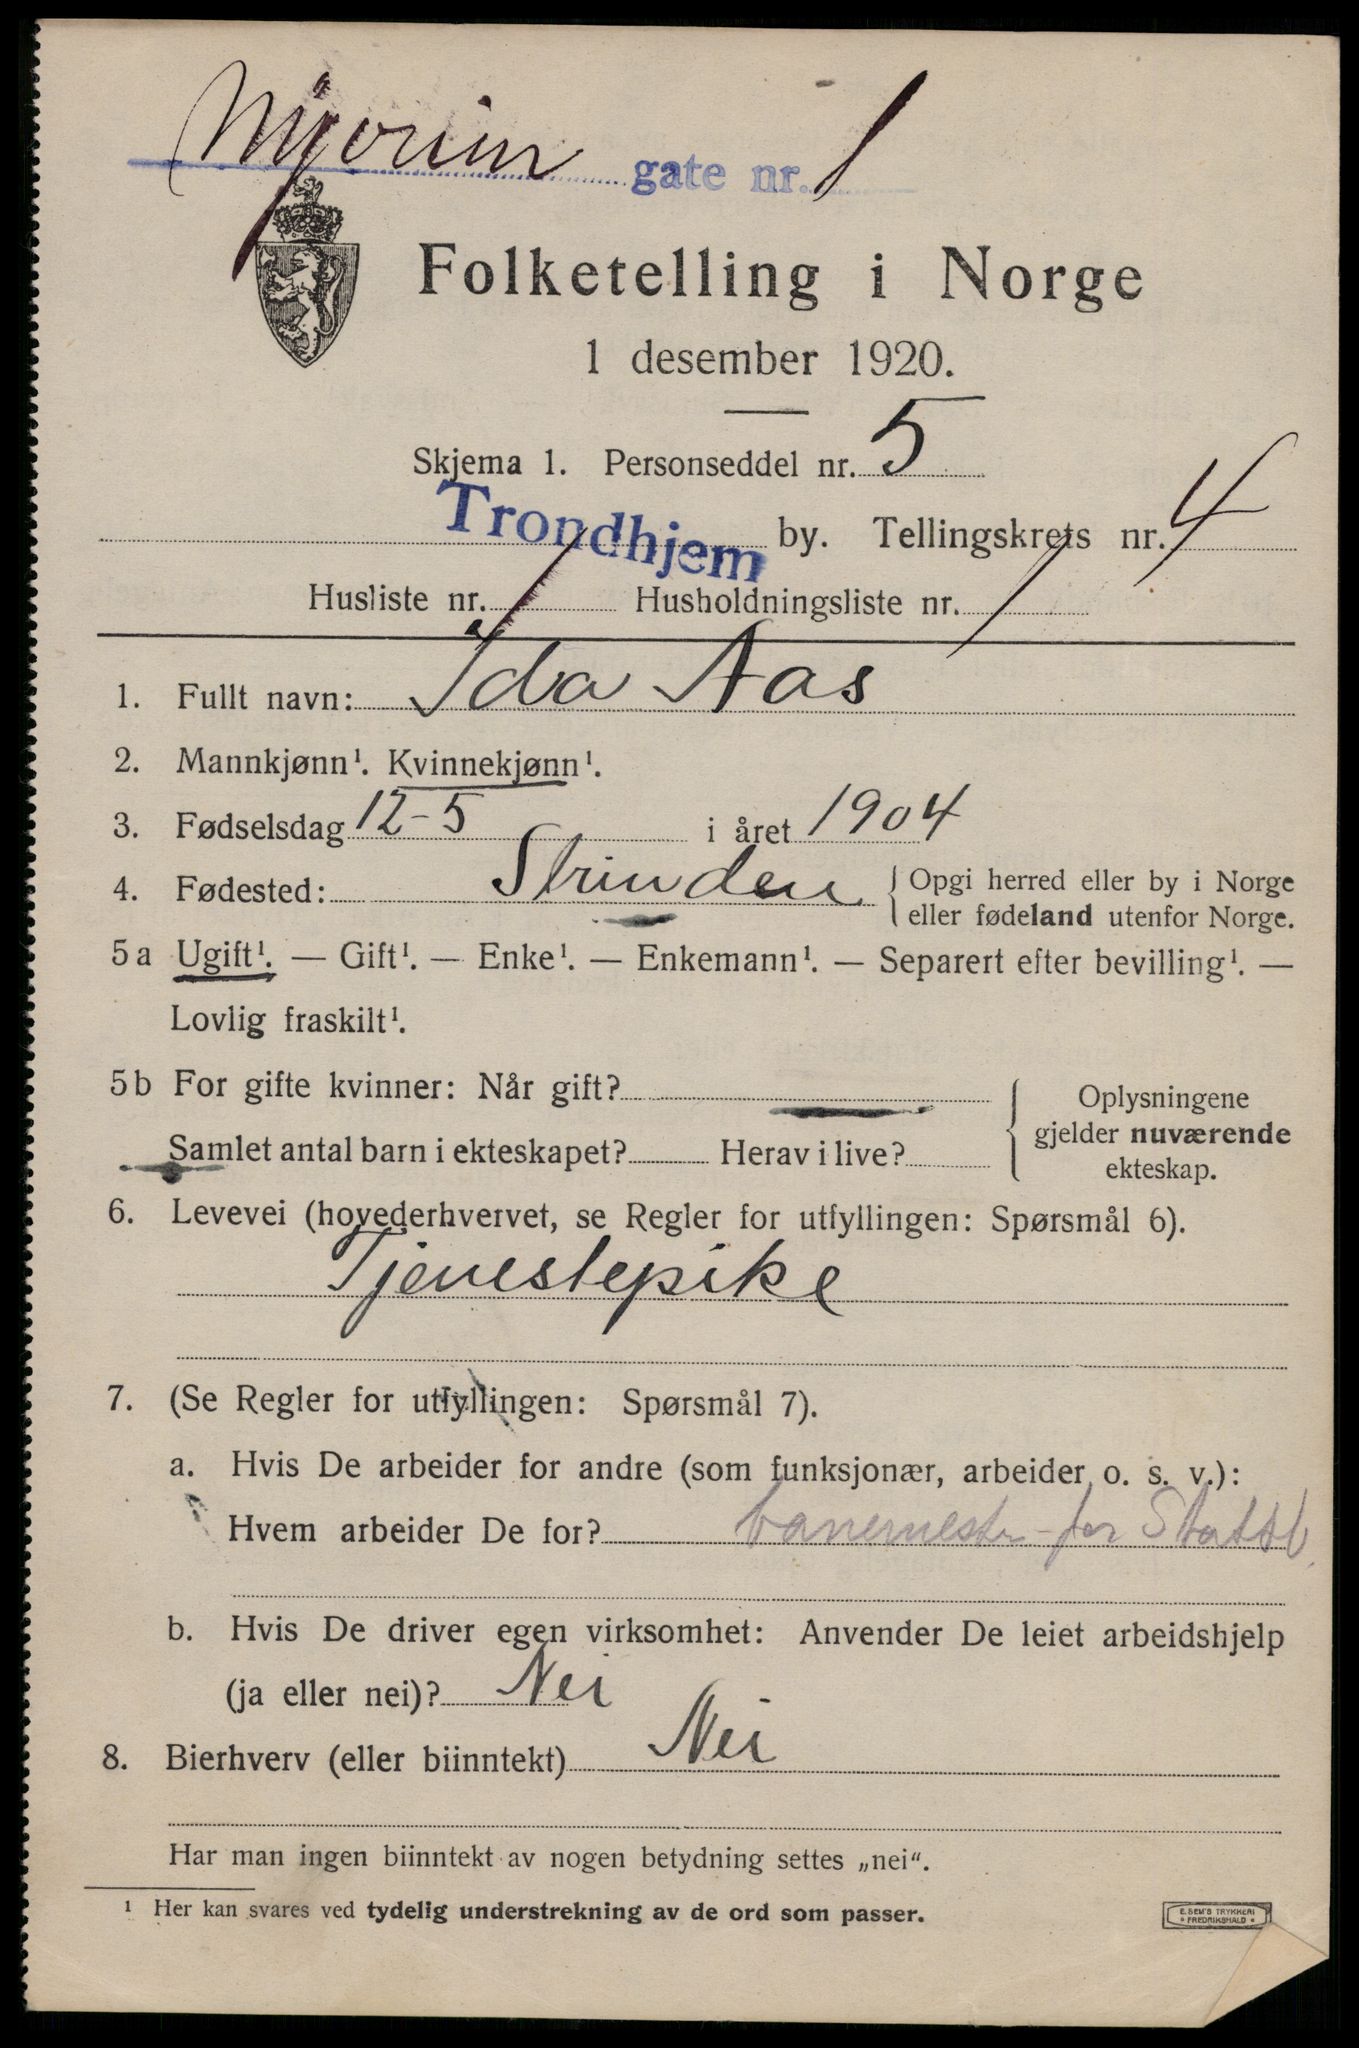 gate nr. 1
Folketelling i Norge
1 desember 1920.
Skjema 1. Personseddel nr. 5
Trondhjem by. Tellingskrets nr. 4
Husliste nr. 1 Husholdningsliste nr. 1
1. Fullt navn: Ida Aas
2. Mannkjønn¹. Kvinnekjønn¹.
3. Fødselsdag 12-5 i året 1904
4. Fødested: Strinden { Opgi herred eller by i Norge
eller fødeland utenfor Norge.
5a Ugift¹. — Gift¹. — Enke¹. — Enkemann¹. — Separert efter bevilling¹. —
Lovlig fraskilt¹.
5b For gifte kvinner: Når gift?
Samlet antal barn i ekteskapet? Herav i live?
Oplysningene
gjelder nuværende
ekteskap.
6. Levevei (hovederhvervet, se Regler for utfyllingen: Spørsmål 6).
Tjenestepike
7. (Se Regler for utfyllingen: Spørsmål 7).
a. Hvis De arbeider for andre (som funksjonær, arbeider o. s. v.):
Hvem arbeider De for? banemester for Statsb.
b. Hvis De driver egen virksomhet: Anvender De leiet arbeidshjelp
(ja eller nei)? Nei
8. Bierhverv (eller biinntekt) Nei
Har man ingen biinntekt av nogen betydning settes „nei“.
¹ Her kan svares ved tydelig understrekning av de ord som passer.
E. SEM'S TRYKKERI
* FREDRIKSHALD *